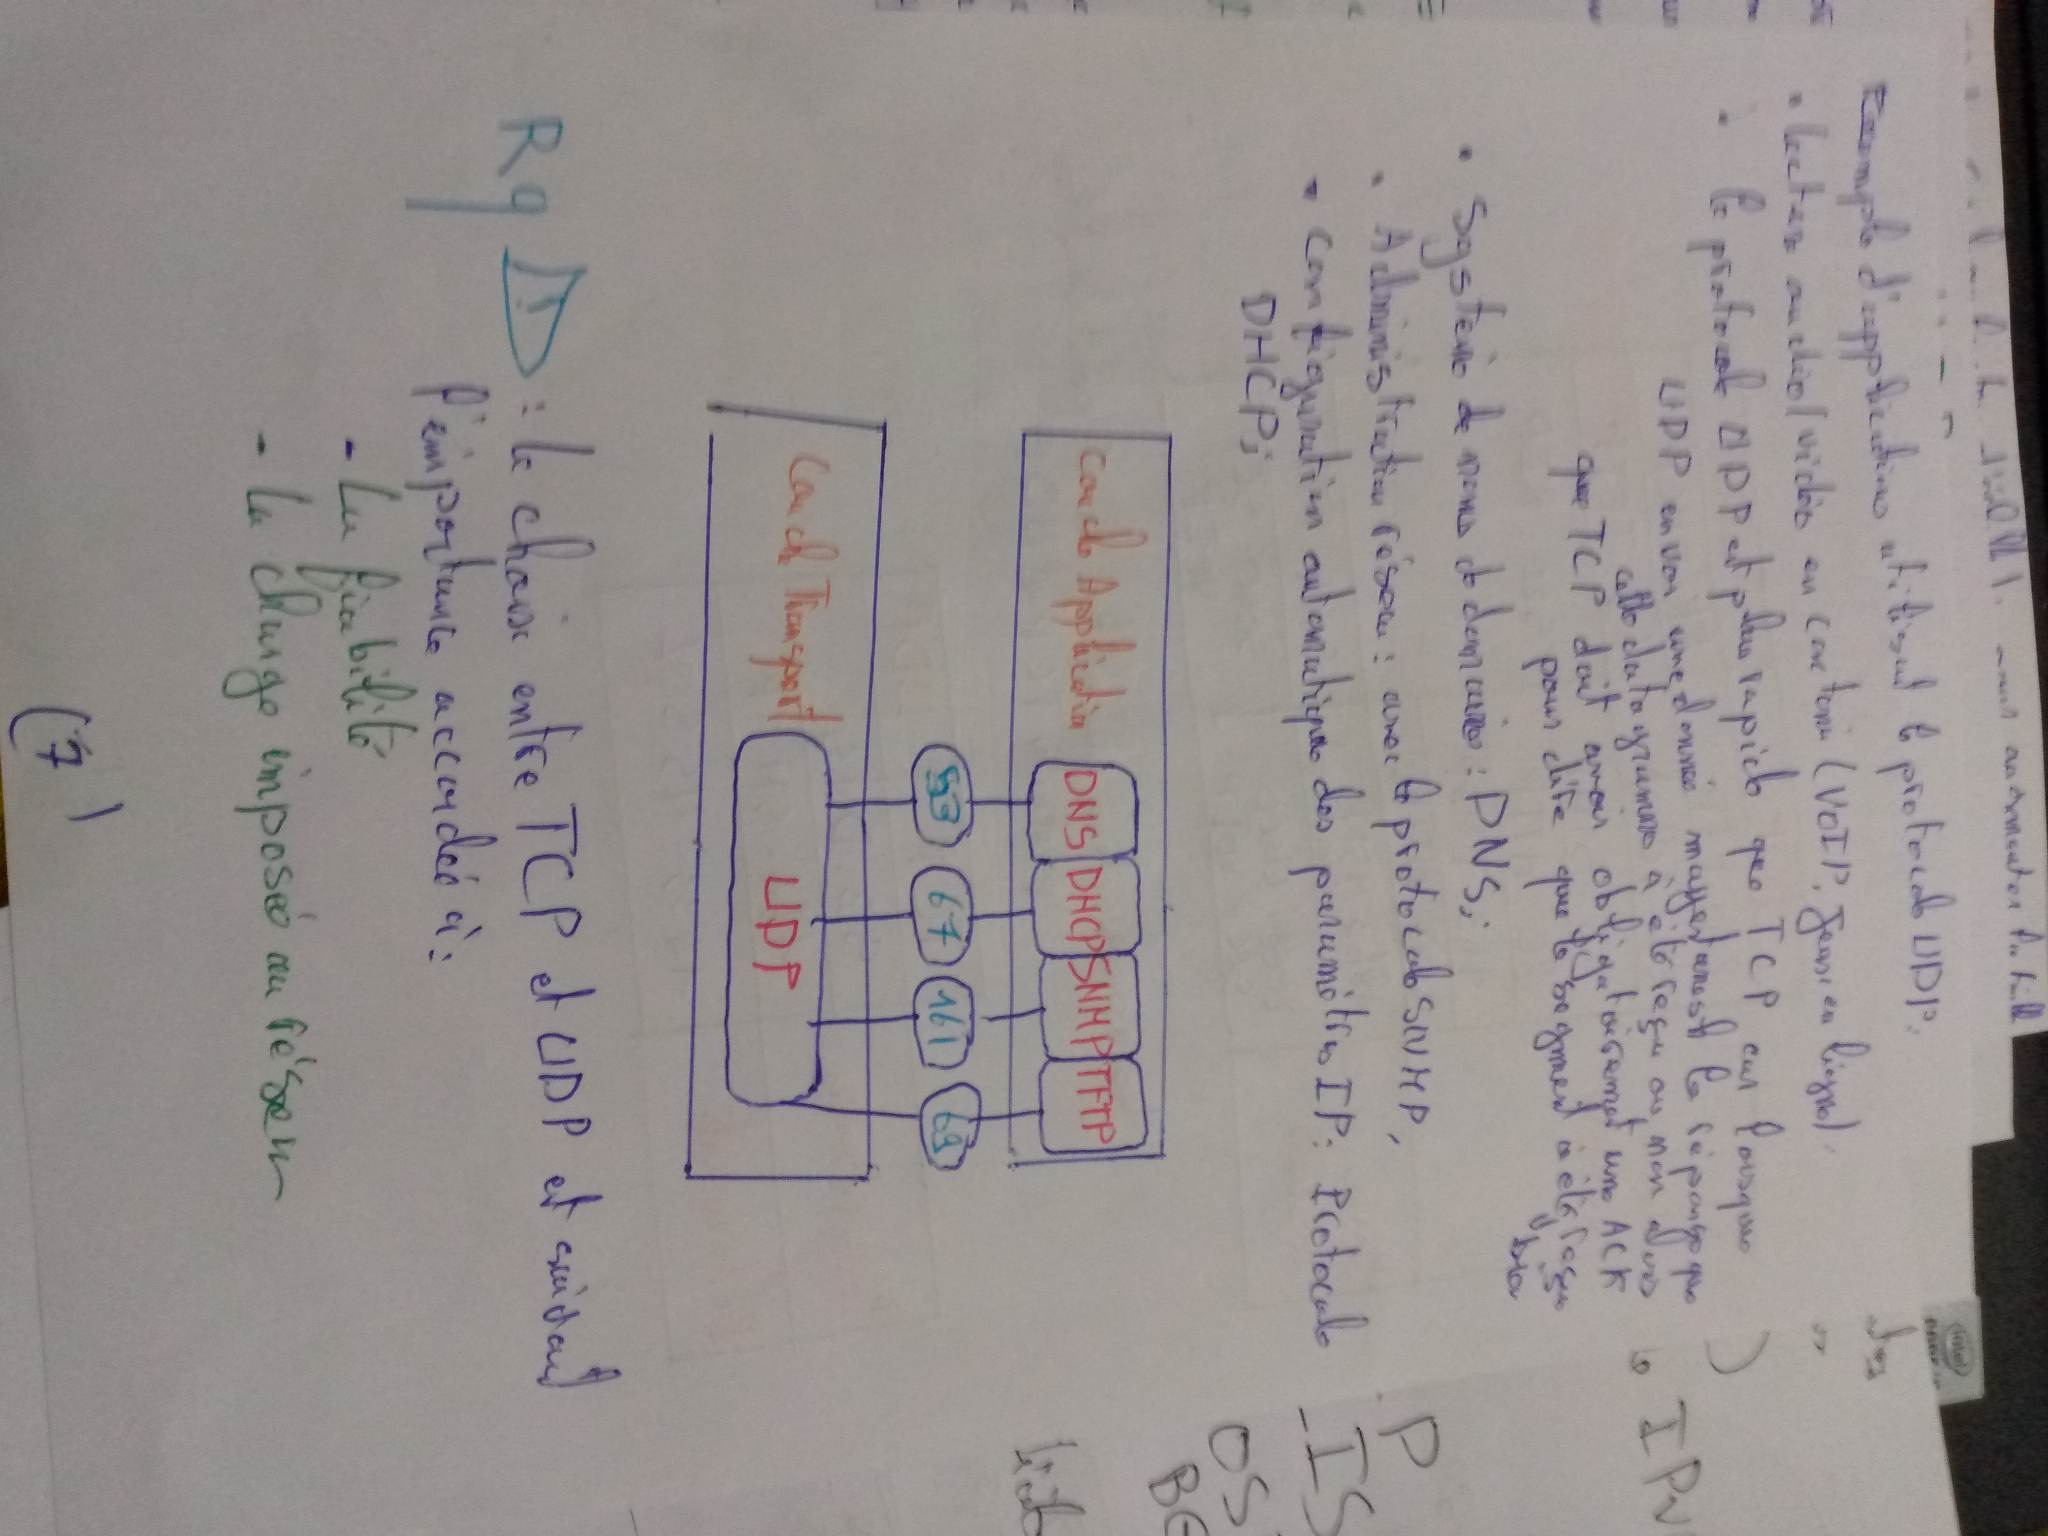 Exemple d'application utilisant le protocole UDP:
• lecteur audio/vidéo en continu (VOIP, Jeux en ligne).
• le protocole UDP est plus rapide que TCP car lorsque
UDP envoi une donnée
cette datagramme à été reçu ou non alors
que TCP doit avoir obligatoirement une ACK
pour dire que le segment à été reçu
• Système de noms de domaine : DNS;
• Administration réseau : avec le protocole SNMP,
• Configuration automatique des paramètres IP : Protocole
DHCP;
Couche Application DNS DHCP SNMP TFTP
53 67 161 69
Couche Transport UDP
Rq ! : le choix entre TCP et UDP et suivant
l'importance accordée à :
- La fiabilité
- La charge imposée au réseau
(7)
IP
P
-IS
OS
BG